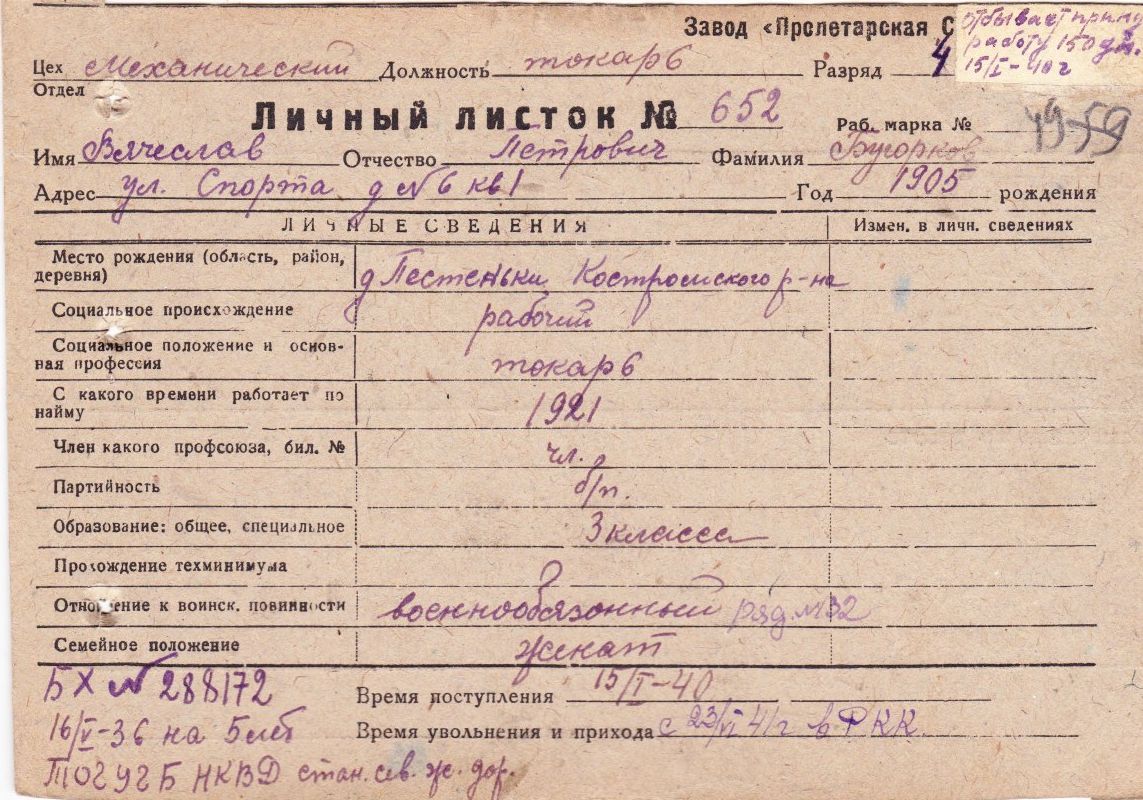 Завод «Пролетарская С
отбывает прину
работу 150 дн.
15/I-40 г
Цех Механический Должность токарь Разряд 4
Отдел
Личный листок № 652
Раб. марка № 59
Имя Вячеслав Отчество Петрович Фамилия Бугорков
Адрес ул. Спорта д № 6 кв 1 Год 1905 рождения
ЛИЧНЫЕ СВЕДЕНИЯ Измен. в личн. сведениях
Место рождения (область, район, деревня) д Пестеньки Костромского р-на
Социальное происхождение рабочий
Социальное положение и основ-
ная профессия токарь
С какого времени работает по найму 1921
Член какого профсоюза, бил. № чл.
Партийность б/п.
Образование: общее, специальное 3 класса
Прохождение техминимума
Отношение к воинск. повинности военнообязонный ряд.
Семейное положение женат
БХ № 288172 Время поступления 15/I-40
16/V-36 на 5 лет Время увольнения и прихода с 23/VI 41 г в РКК
НКВД стан. сев. ж. дор.